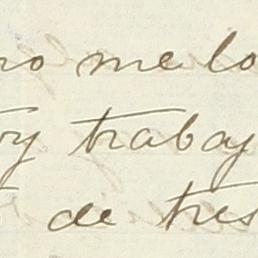 no me lo
oy trabaj
de tres